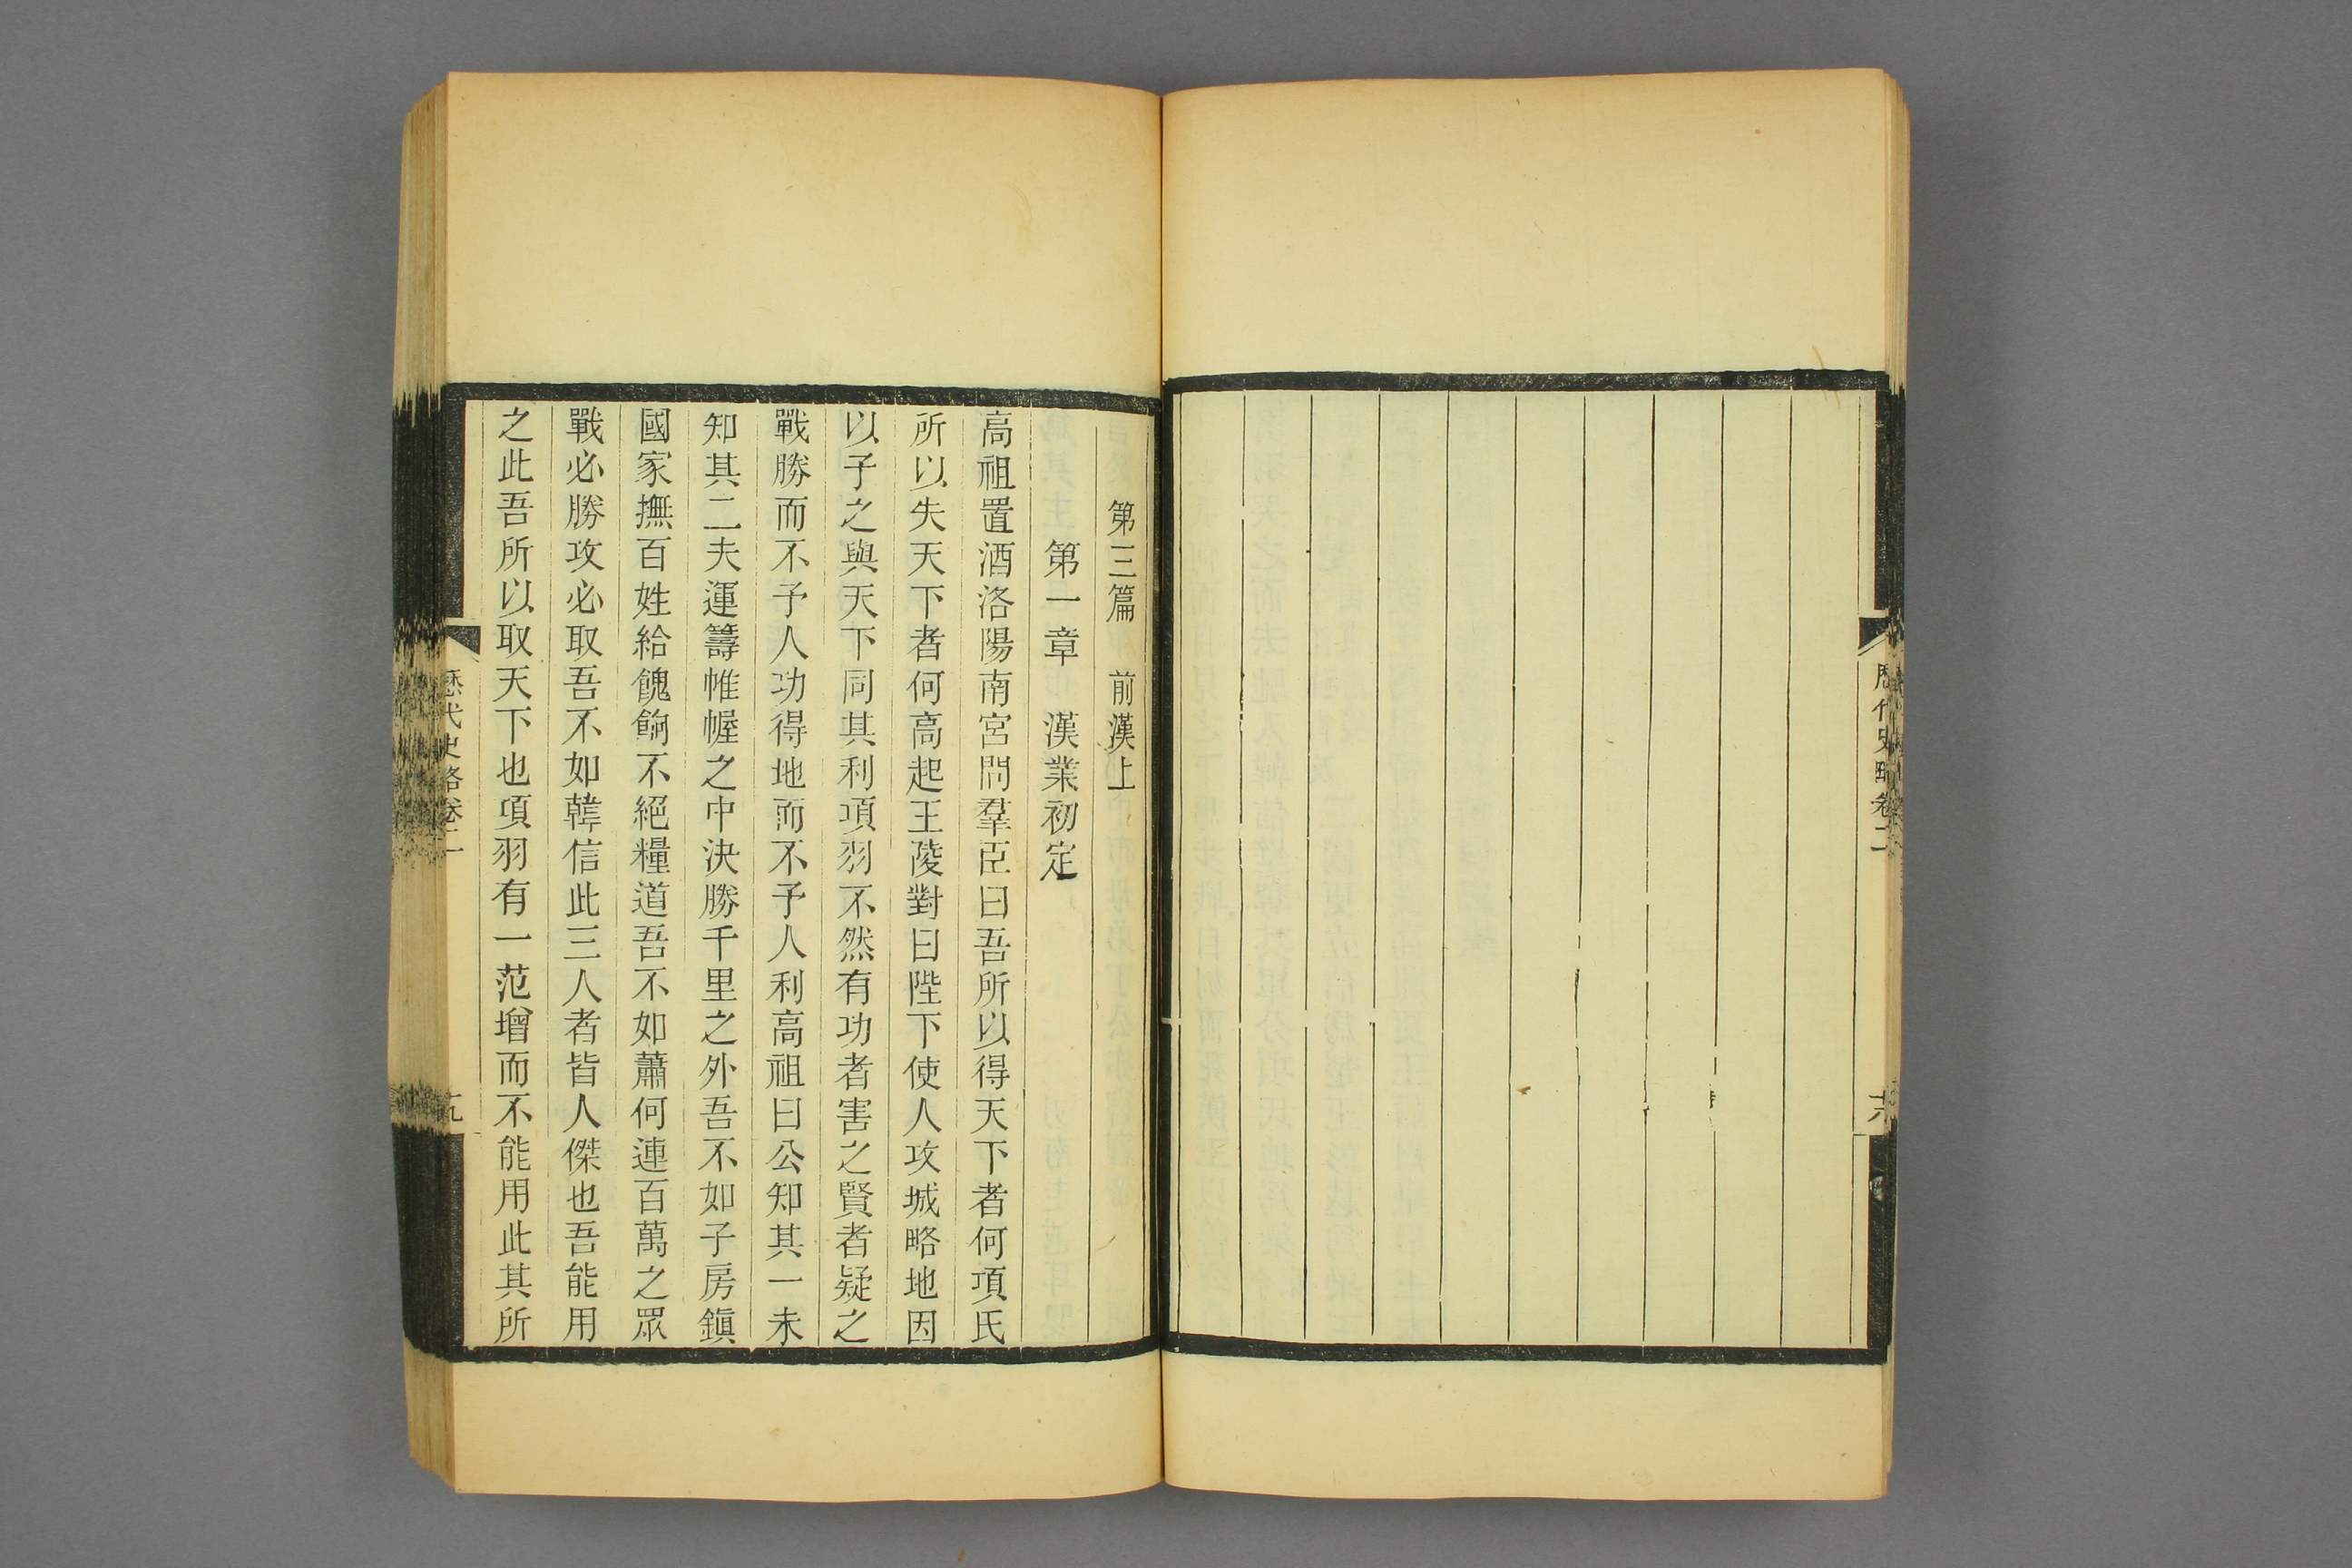 歷代史略卷二
第三篇　前漢上
第一章　漢業初定
高祖置酒洛陽南宮問羣臣曰吾所以得天下者何項氏
所以失天下者何高起王陵對曰陛下使人攻城略地因
以予之與天下同其利項羽不然有功者害之賢者疑之
戰勝而不予人功得地而不予人利高祖曰公知其一未
知其二夫運籌帷幄之中決勝千里之外吾不如子房鎭
國家撫百姓給餽餉不絕糧道吾不如蕭何連百萬之眾
戰必勝攻必取吾不如韓信此三人者皆人傑也吾能用
之此吾所以取天下也項羽有一范增而不能用此其所
歷代史略卷二